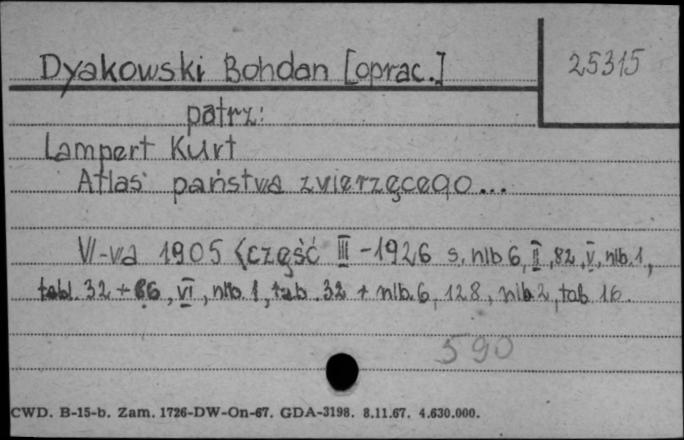 Dyakowski Bohdan [oprac.]
25315
patrz:
Lampert Kurt
Atlas państwa zwierzęcego...
W-wa 1905 <część III - 1926 s. nlb 6, II, 82, V, nlb. 1,
tabl. 32 + 66, VI, nlb. 1, tab. 32 + nlb. 6, 128, nlb 2, tab 16.
590
CWD. B-15-b. Zam. 1726-DW-On-67. GDA-3198. 8.11.67. 4.630.000.